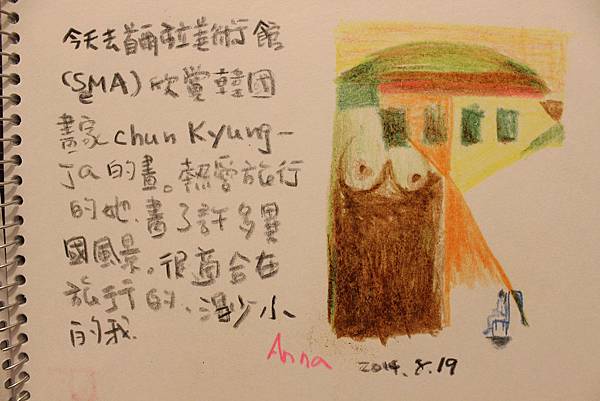 今天去首爾市立美術館
(SeMA) 欣賞韓國
畫家 chun Kyung-
ja 的畫。熱愛旅行
的她,畫了許多異
國風景。很適合在
旅行的、渺小
的我.
Anna
2014.8.19